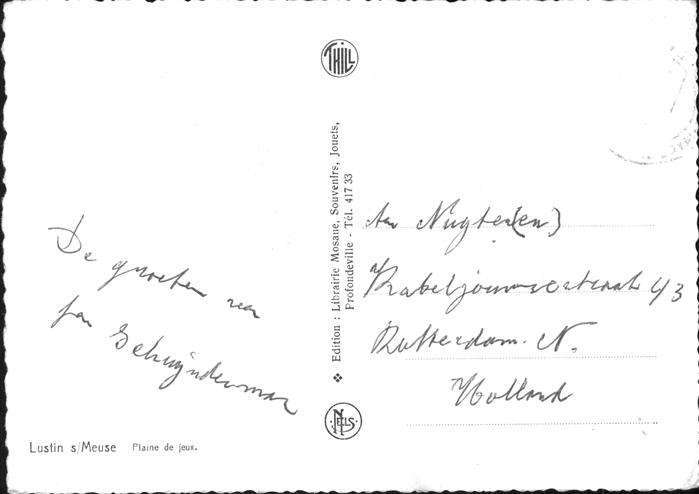 THILL
Edition : Librairie Mosane, Souvenirs, Jouets,
Profondeville - Tél. 417 33
De groeten van
Jan Schuijnderman
Nugter(en)
43
Rotterdam. N.
Holland
NELS
Lustin s/Meuse Plaine de jeux.